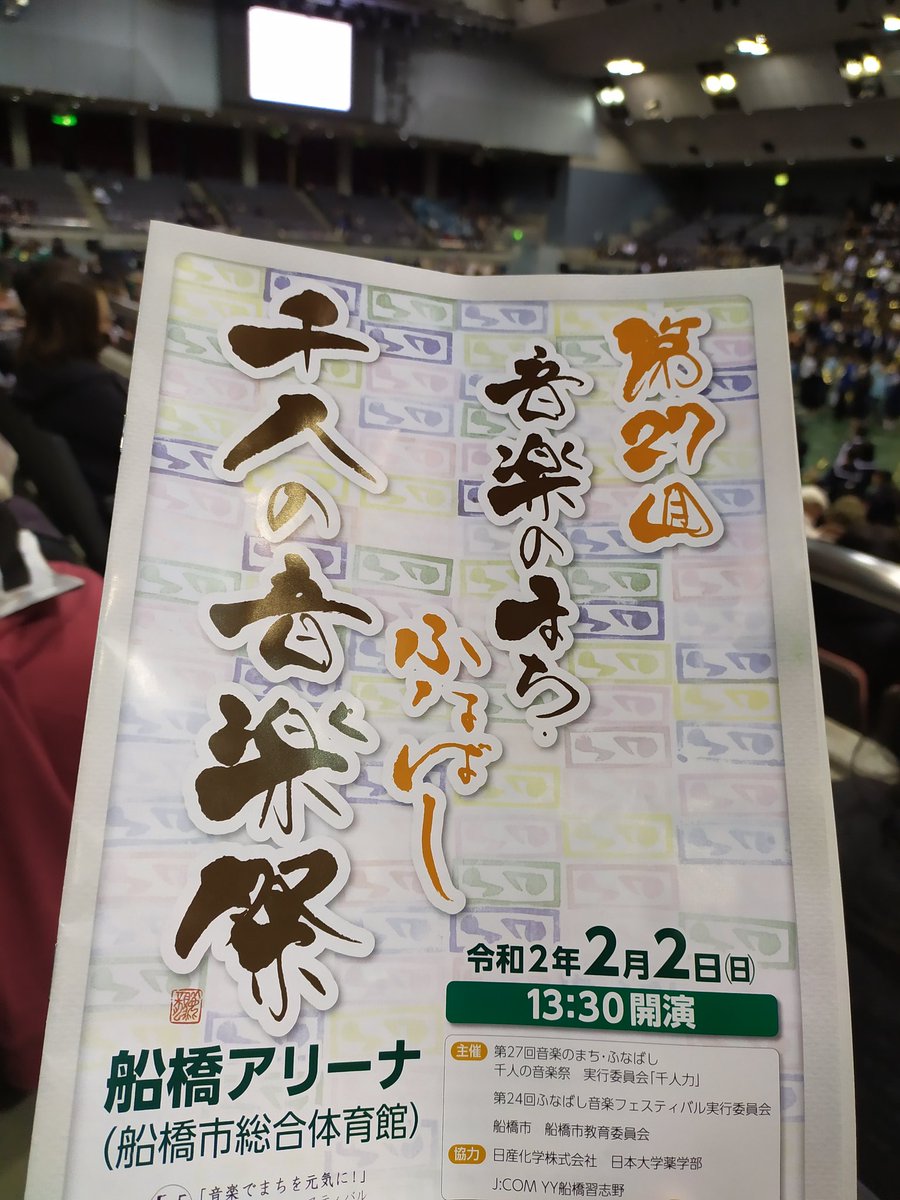 第27回
音楽のまち・
ふなばし
千人の音楽祭
令和2年2月2日(日)
13:30開演
船橋アリーナ
(船橋市総合体育館)
主催 第27回音楽のまち・ふなばし
千人の音楽祭 実行委員会「千人力」
第24回ふなばし音楽フェスティバル実行委員会
船橋市 船橋市教育委員会
協力 日産化学株式会社 日本大学薬学部
J:COM YY船橋習志野
「音楽でまちを元気に!」